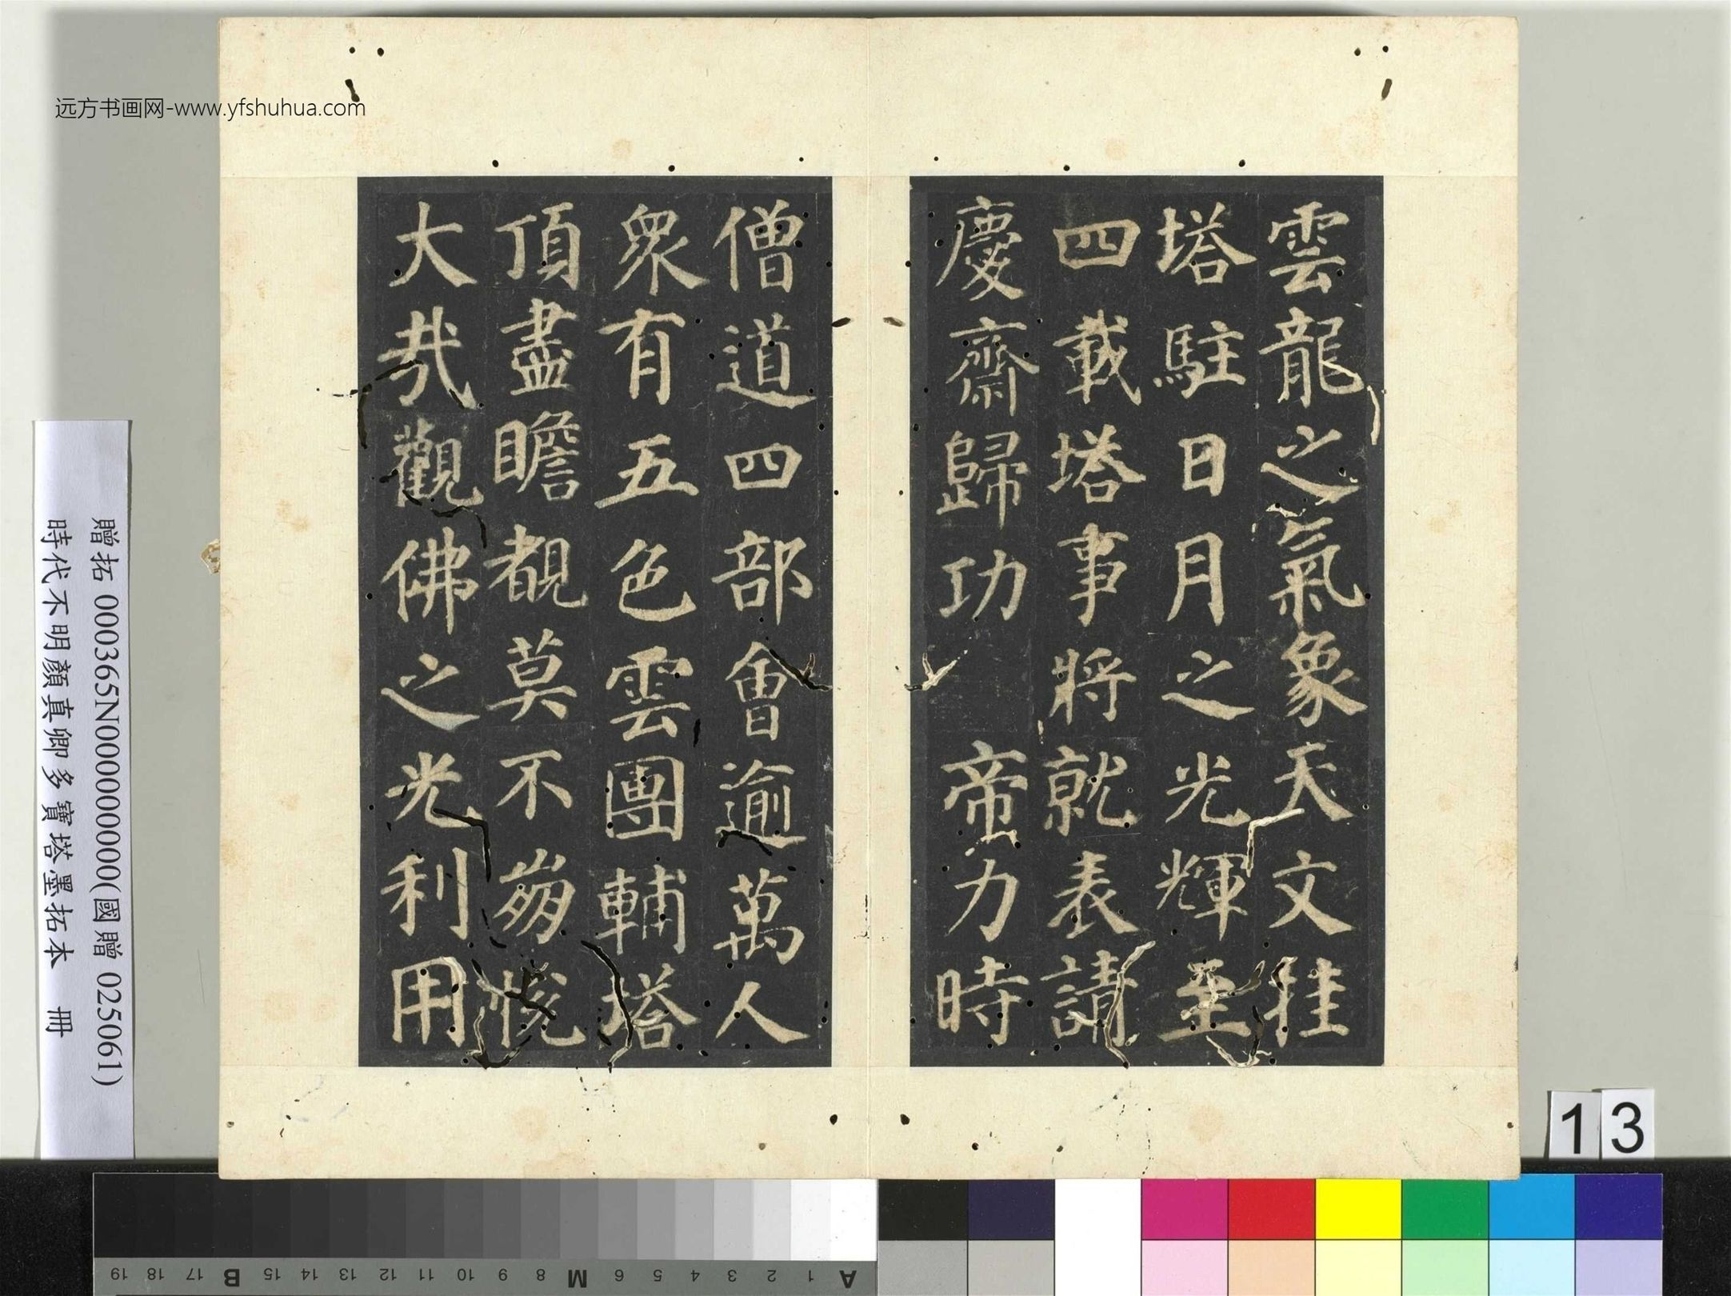 远方书画网-www.yfshuhua.com
雲龍之氣象天文挂
塔駐日月之光輝至
四載塔事將就表請
慶齋歸功 帝力時
僧道四部會逾萬人
眾有五色雲團輔塔
頂盡瞻覩莫不崩悅
大哉觀佛之光利用
贈拓 000365N000000000(國贈 025061)
時代不明顏真卿多寶塔墨拓本 冊
13
A 1 2 3 4 5 6 M 8 9 10 11 12 13 14 15 B 17 18 19